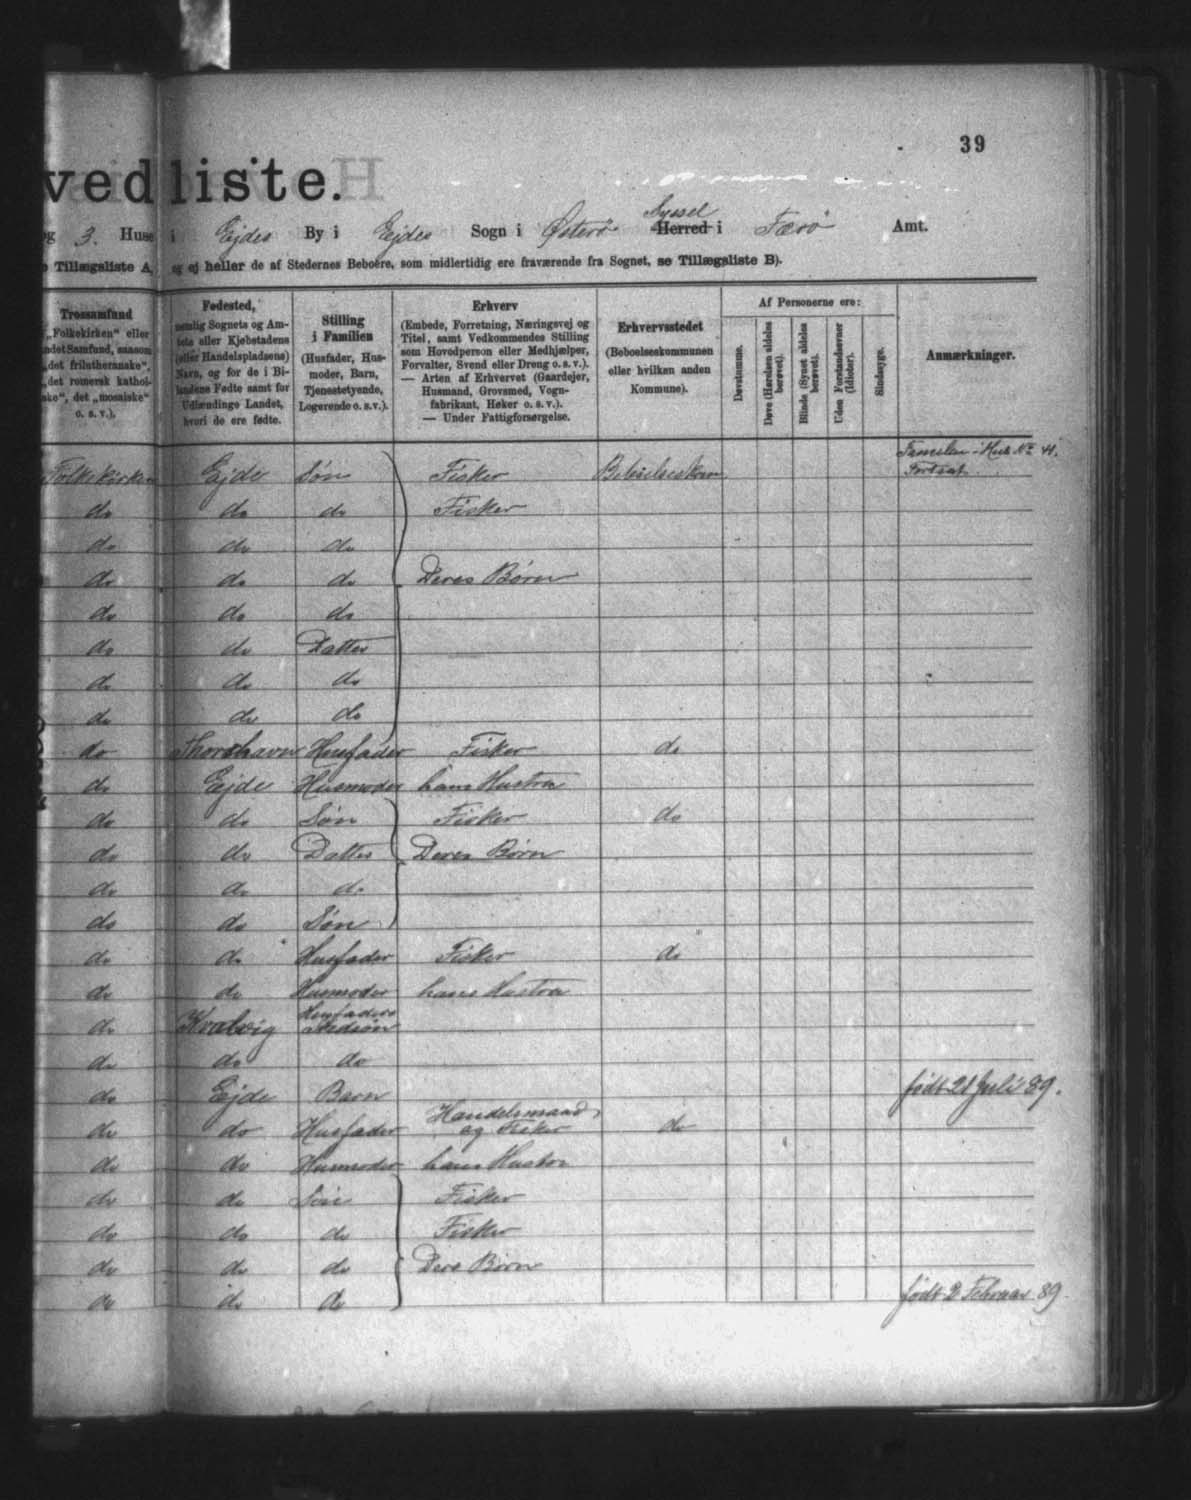 39
vedliste.
og 3. Huse i Ejdes By i Ejdes Sogn i Østerø Syssel Herred i Færø Amt.
Tillægsliste A, og ej heller de af Stedernes Beboere, som midlertidig ere fraværende fra Sognet, se Tillægsliste B).
Trossamfund
„Folkekirken“ eller
andet Samfund, saasom
„det frilutheranske“,
„det romersk kathol-
ske“, det „mosaiske“
o. s. v.).
Fødested,
nemlig Sognets og Am-
tets eller Kjøbstadens
(eller Handelspladsens)
Navn, og for de i Bi-
landene Fødte samt for
Udlændinge Landet,
hvori de ere fødte.
Stilling
i Familien
(Husfader, Hus-
moder, Barn,
Tjenestetyende,
Logerende o. s. v.).
Erhverv
(Embede, Forretning, Næringsvej og
Titel, samt Vedkommendes Stilling
som Hovedperson eller Medhjælper,
Forvalter, Svend eller Dreng o. s. v.).
— Arten af Erhvervet (Gaardejer,
Husmand, Grovsmed, Vogn-
fabrikant, Høker o. s. v.).
— Under Fattigforsørgelse.
Erhvervsstedet
(Beboelseskommunen
eller hvilken anden
Kommune).
Af Personerne ere:
Døvstumme.
Døve (Hørelsen aldeles
berøvet).
Blinde (Synet aldeles
berøvet).
Uden Forstandsevner
(Idioter).
Sindssyge.
Anmærkninger.
Familie-Hus No 4.
Fortsat
Folkekirken Ejde Søn Fisker Beboelseskom
do do do Fisker
do do do
do do do Deres Børn
do do do
do do Datter
do do do
do do do
do Thorshavn Husfader Fisker do
do Ejde Husmoder hans Hustru
do do Søn Fisker do
do do Datter Deres Børn
do do do
do do Søn
do do Husfader Fisker do
do do Husmoder hans Hustru
do Kvalvig Husfaders Stedsøn
do do do
do Ejde Barn født 21 Juli 89.
do do Husfader Handelsmand og Fisker do
do do Husmoder hans Hustru
do do Søn Fisker
do do do Fisker
do do do Ders Børn
do do do født 2 Februar 89.